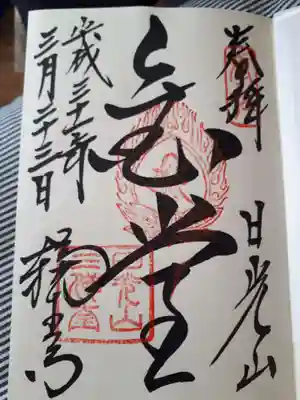 奉拝
日光山
金堂
日光山
三佛堂
平成三十一年
三月二十三日
輪王寺